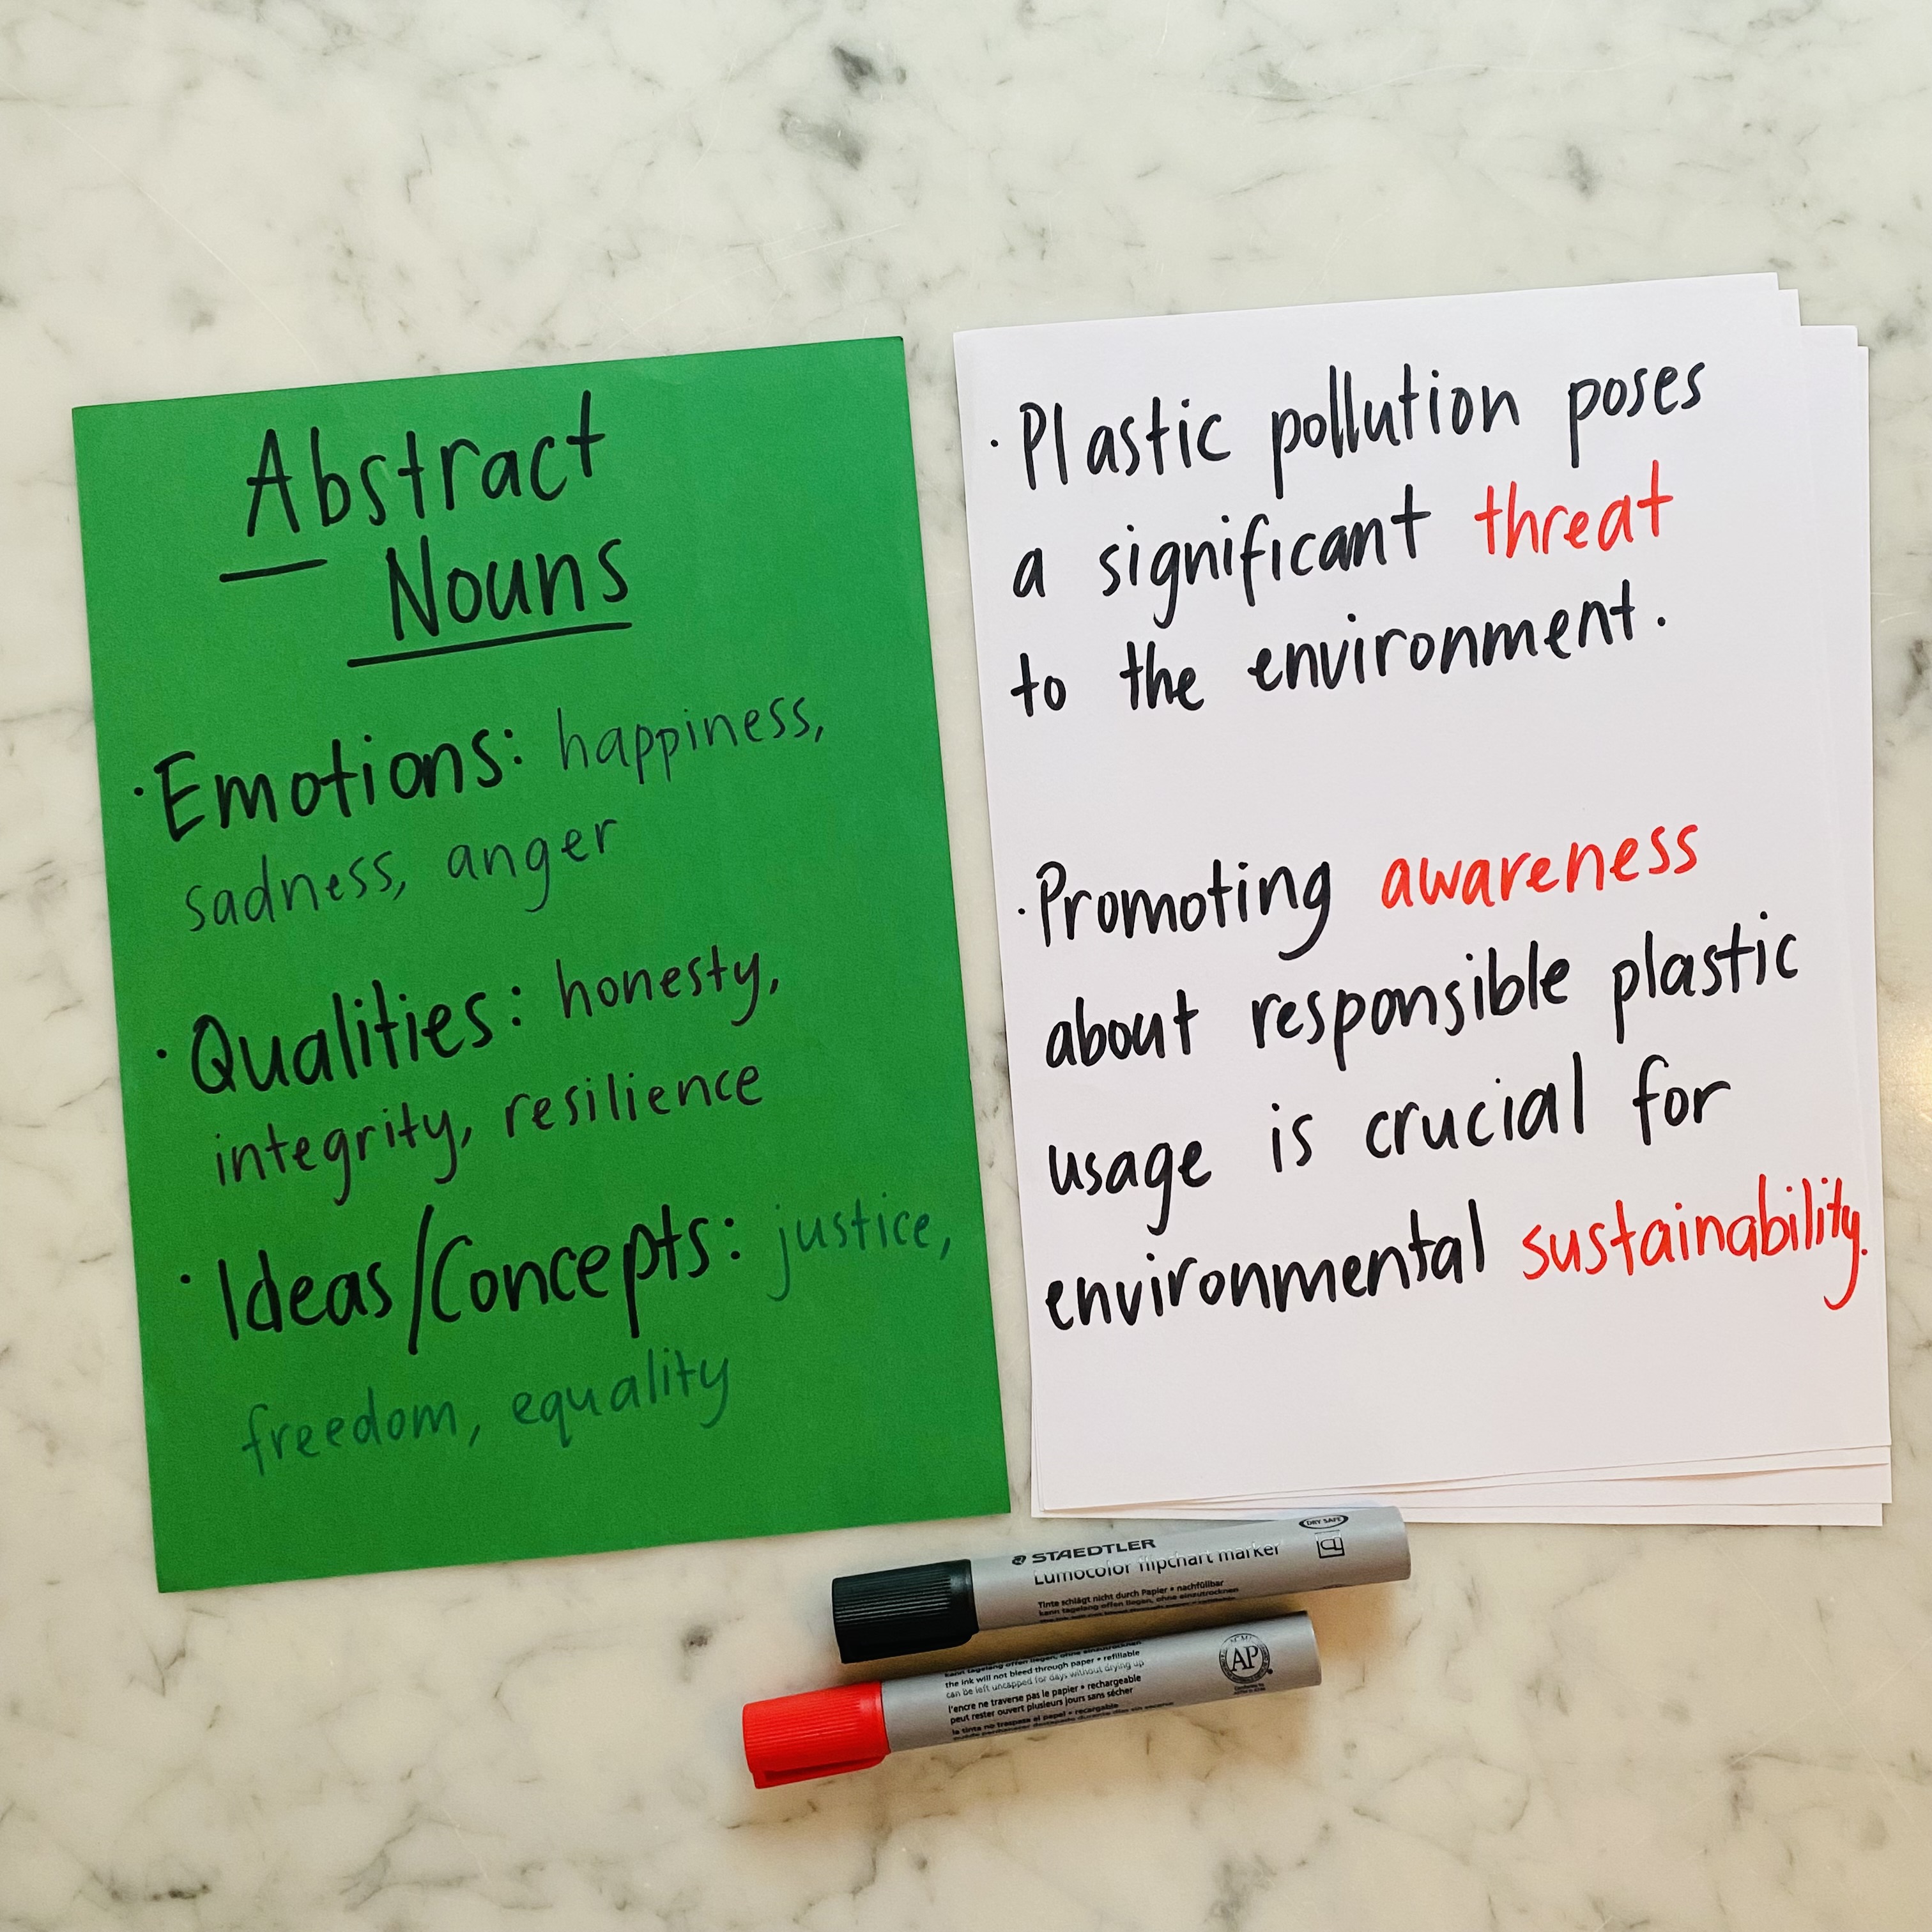 Abstract
Nouns
· Emotions: happiness,
sadness, anger
· Qualities: honesty,
integrity, resilience
· Ideas/Concepts: justice,
freedom, equality
· Plastic pollution poses
a significant threat
to the environment.
· Promoting awareness
about responsible plastic
usage is crucial for
environmental sustainability.
STAEDTLER
Lumocolor flipchart marker
DRY SAFE
Tinte schlägt nicht durch Papier • nachfüllbar
kann tagelang offen liegen, ohne einzutrocknen
kann tagelang offen liegen, ohne einzutrocknen
the ink will not bleed through paper • refillable
can be left uncapped for days without drying up
l'encre ne traverse pas le papier • rechargeable
peut rester ouvert plusieurs jours sans sécher
la tinta no traspasa el papel • recargable
AP